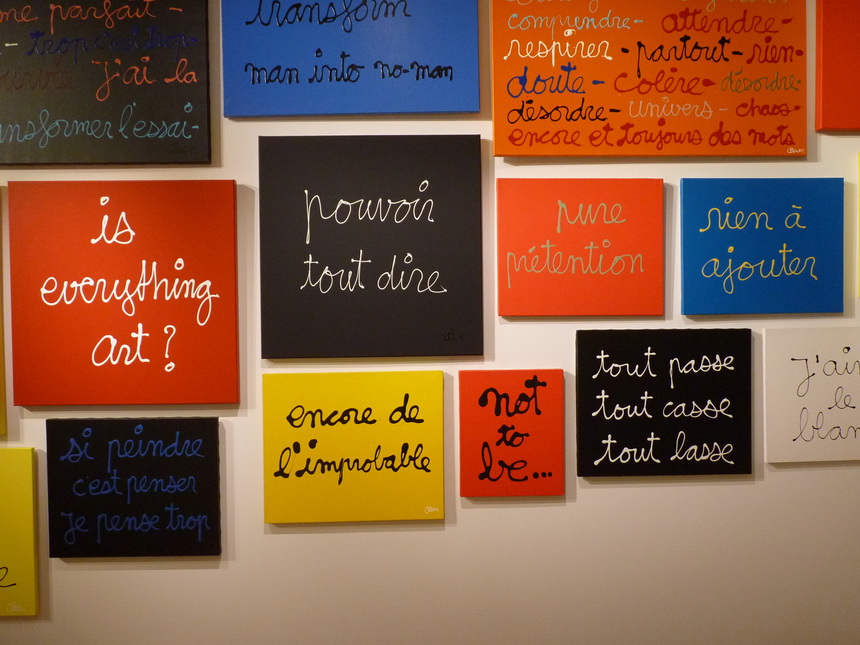 me parfait -
- trop c'est trop -
j'ai la
transformer l'essai -
transform
man into no-man
comprendre - attendre -
respirer - partout - rien -
doute - colère - désordre
désordre - univers - chaos -
encore et toujours des mots
is
everything
art ?
pouvoir
tout dire
pure
prétention
rien à
ajouter
si peindre
c'est penser
je pense trop
encore de
l'improbable
not
to
be...
tout passe
tout casse
tout lasse
J'aim
le
blan
e